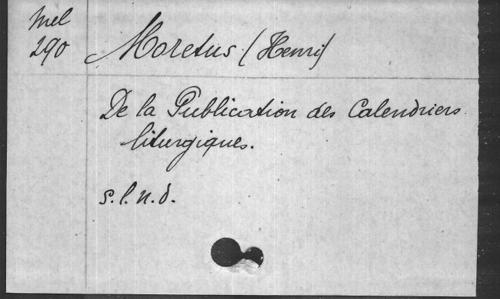 Mel
290
Moretus (Henri)
De la Publication des Calendriers
liturgiques.
s.l.n.d.